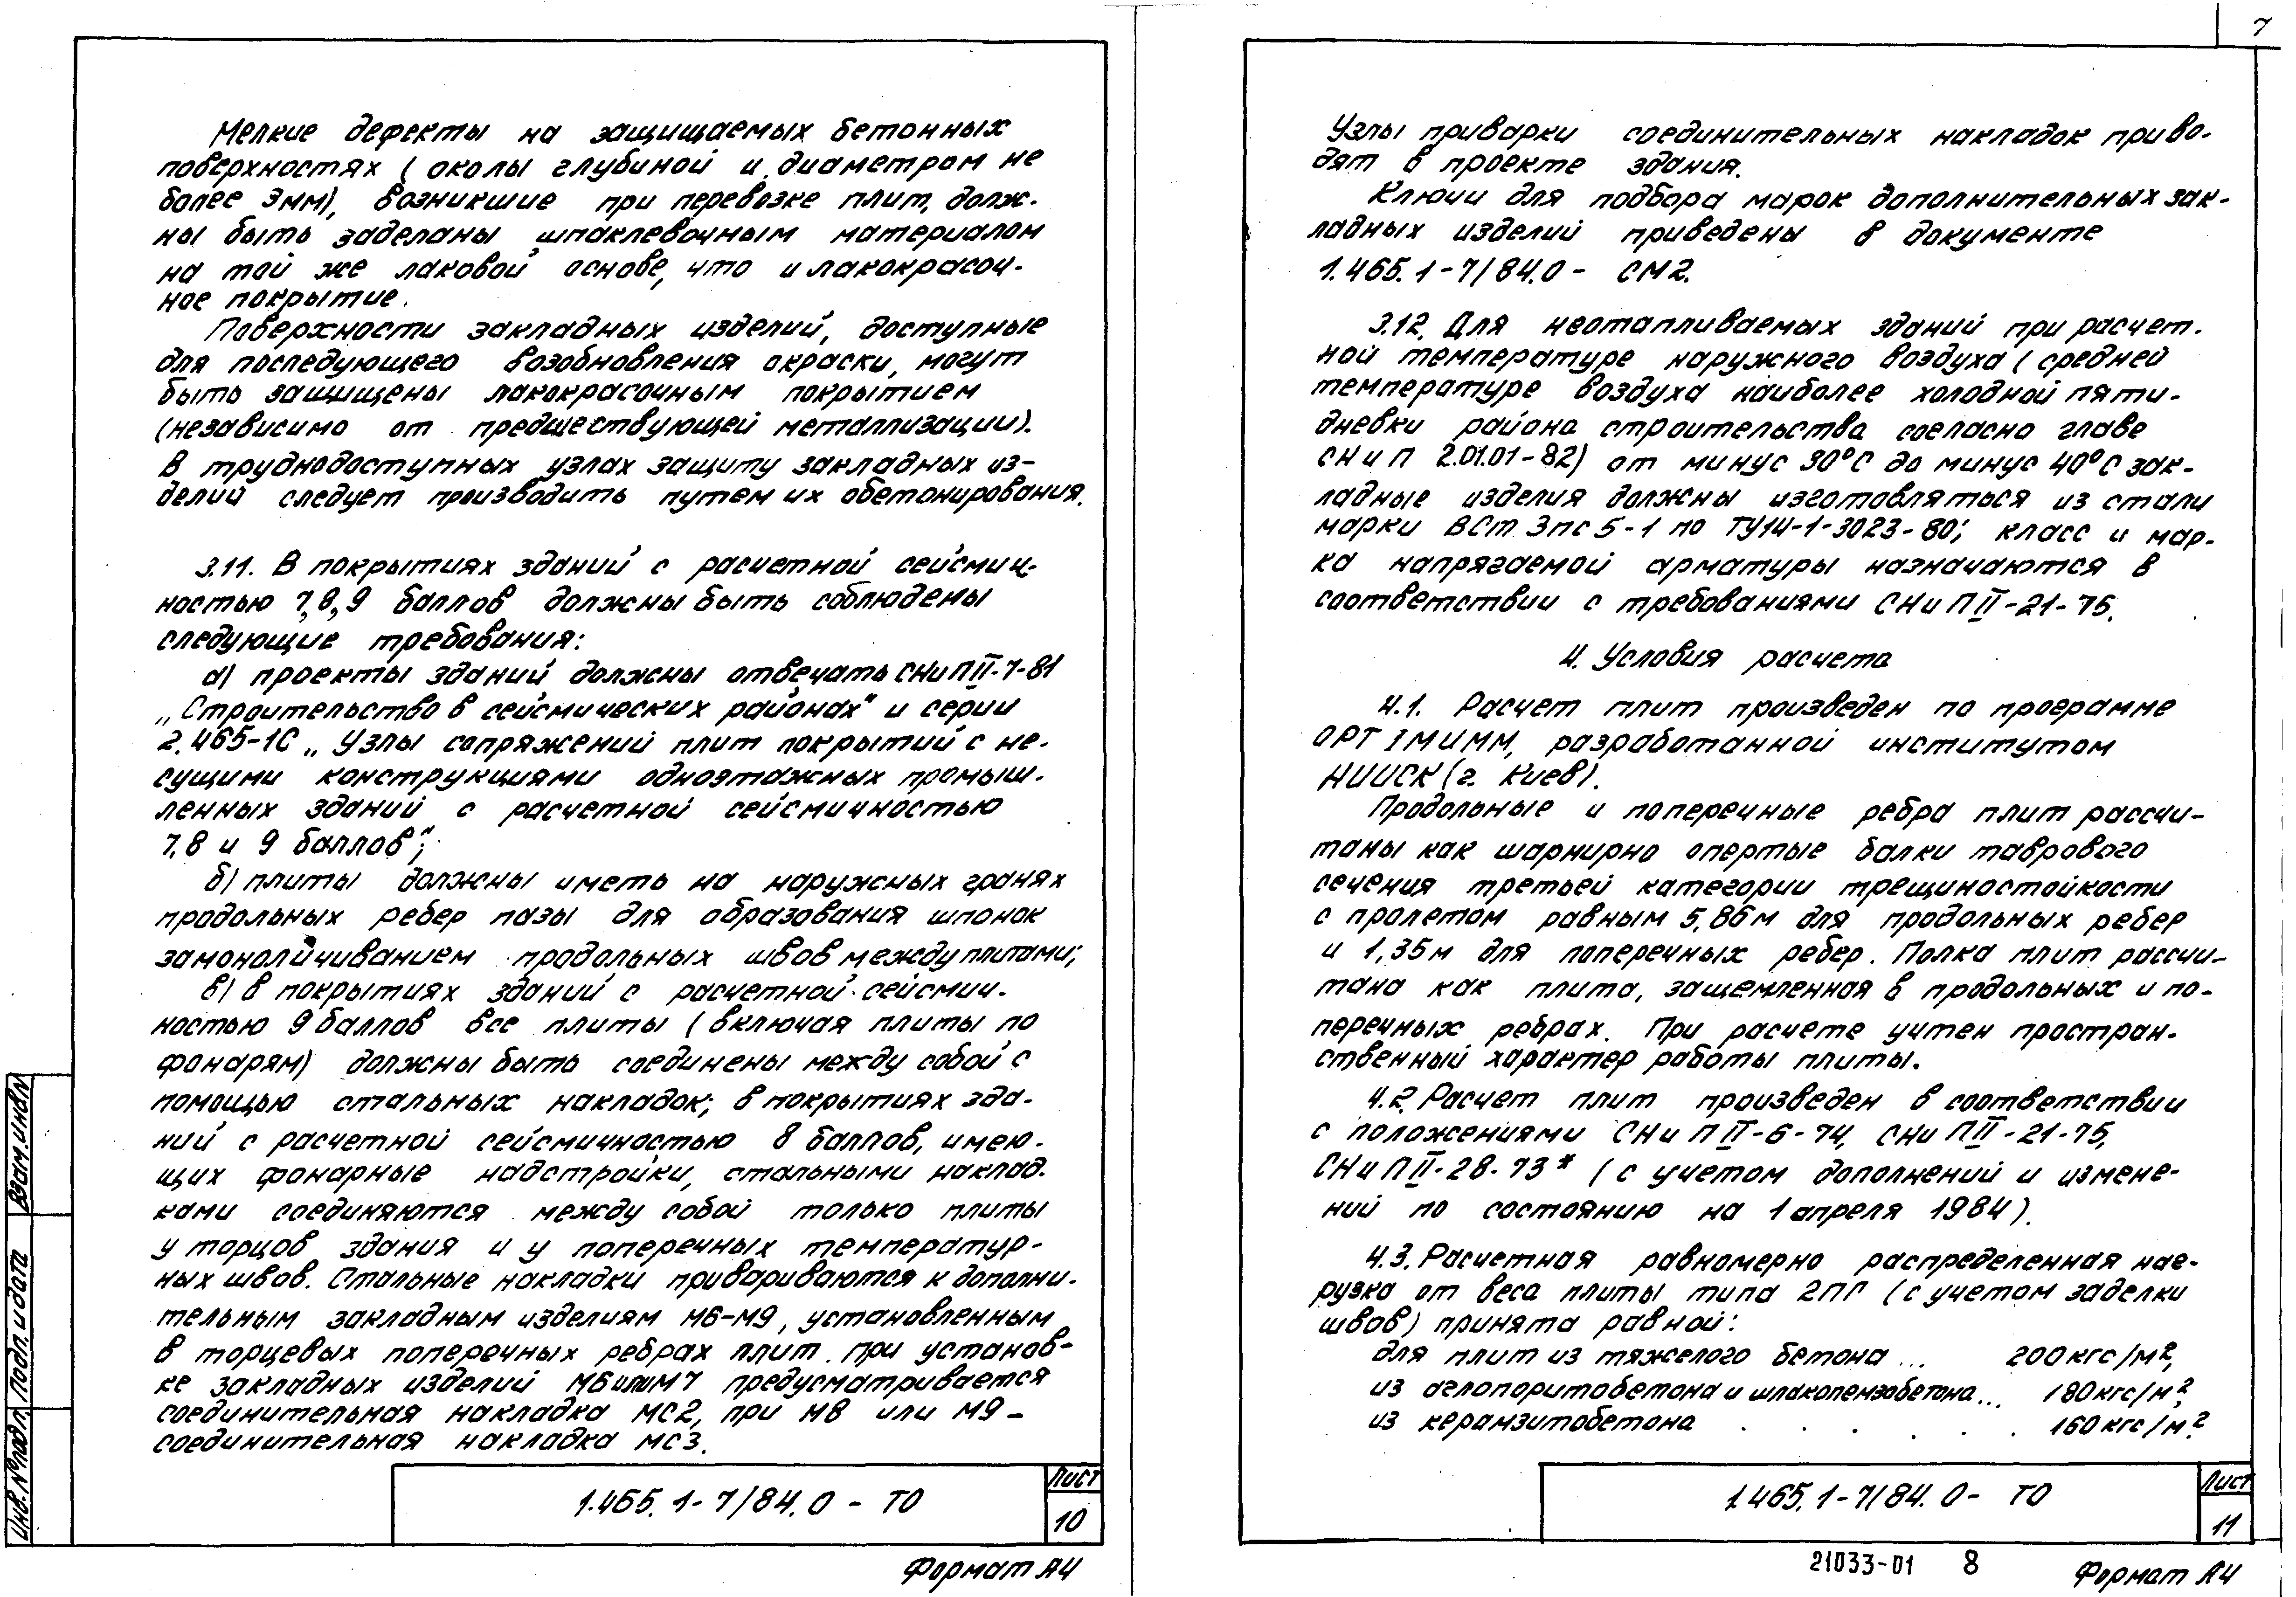 Мелкие дефекты на защищаемых бетонных
поверхностях (околы глубиной и диаметром не
более 3мм), возникшие при перевозке плит, долж-
ны быть заделаны шпаклевочным материалом
на той же лаковой основе, что и лакокрасоч-
ное покрытие.
Поверхности закладных изделий, доступные
для последующего возобновления окраски, могут
быть защищены лакокрасочным покрытием
(независимо от предшествующей металлизации).
В труднодоступных узлах защиту закладных из-
делий следует производить путем их обетонирования.
3.11. В покрытиях зданий с расчетной сейсмич-
ностью 7,8,9 баллов должны быть соблюдены
следующие требования:
а) проекты зданий должны отвечать СНиП II-7-81
„Строительство в сейсмических районах" и серии
2.465-1С „Узлы сопряжений плит покрытий с не-
сущими конструкциями одноэтажных промыш-
ленных зданий с расчетной сейсмичностью
7,8 и 9 баллов";
б) плиты должны иметь на наружных гранях
продольных ребер пазы для образования шпонок
замоноличиванием продольных швов между плитами;
в) в покрытиях зданий с расчетной сейсмич-
ностью 9 баллов все плиты (включая плиты по
фонарям) должны быть соединены между собой с
помощью стальных накладок; в покрытиях зда-
ний с расчетной сейсмичностью 8 баллов, имею-
щих фонарные надстройки, стальными наклад-
ками соединяются между собой только плиты
у торцов здания и у поперечных температур-
ных швов. Стальные накладки привариваются к дополни-
тельным закладным изделиям М6-М9, установленным
в торцевых поперечных ребрах плит. при установ-
ке закладных изделий М6 или М7 предусматривается
соединительная накладка МС2, при М8 или М9 -
соединительная накладка МС3.
1.465.1-7/84.0 - ТО
Лист
10
Формат А4
Взам.инв.N
Подп. и дата
Инв.№подл.
7
Узлы приварки соединительных накладок приво-
дят в проекте здания.
Ключи для подбора марок дополнительных зак-
ладных изделий приведены в документе
1.465.1-7/84.0 - СМ2.
3.12. Для неотапливаемых зданий при расчет-
ной температуре наружного воздуха (средней
температуре воздуха наиболее холодной пяти-
дневки района строительства согласно главе
СНиП 2.01.01-82) от минус 30°С до минус 40°С зак-
ладные изделия должны изготовляться из стали
марки ВСт 3пс5-1 по ТУ14-1-3023-80; класс и мар-
ка напрягаемой арматуры назначаются в
соответствии с требованиями СНиП II-21-75.
4. Условия расчета
4.1. Расчет плит произведен по программе
ОРТ 1МИММ, разработанной институтом
НИИСК (г. Киев).
Продольные и поперечные ребра плит рассчи-
таны как шарнирно опертые балки таврового
сечения третьей категории трещиностойкости
с пролетом равным 5,86м для продольных ребер
и 1,35м для поперечных ребер. Полка плит рассчи-
тана как плита, защемленная в продольных и по-
перечных ребрах. При расчете учтен простран-
ственный характер работы плиты.
4.2. Расчет плит произведен в соответствии
с положениями СНиП II-6-74, СНиП II-21-75,
СНиП II-28-73* (с учетом дополнений и измене-
ний по состоянию на 1 апреля 1984).
4.3. Расчетная равномерно распределенная наг-
рузка от веса плиты типа 2ПГ (с учетом заделки
швов) принята равной:
для плит из тяжелого бетона ... 200 кгс/м²,
из аглопоритобетона и шлакопемзобетона ... 180 кгс/м²,
из керамзитобетона . . . . . . 160 кгс/м².
1.465.1-7/84.0 - ТО
Лист
11
21033-01 8
Формат А4